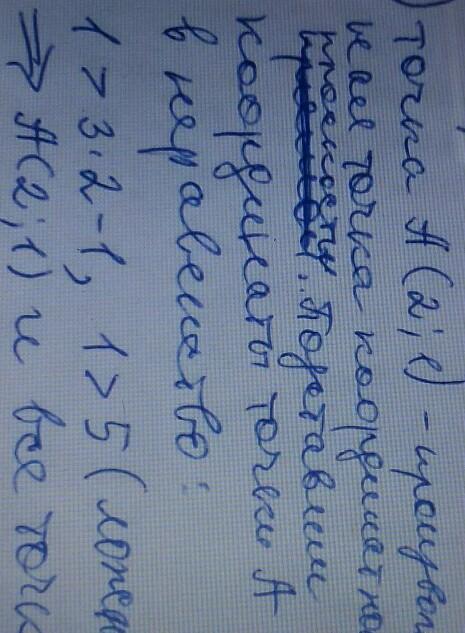 точка А(2; 1) - произвол
ная точка координатно
плоскости. Подставим
координаты точки А
в неравенство:
1 > 3·2-1, 1 > 5 (ложн
⇒ А(2; 1) и все точк